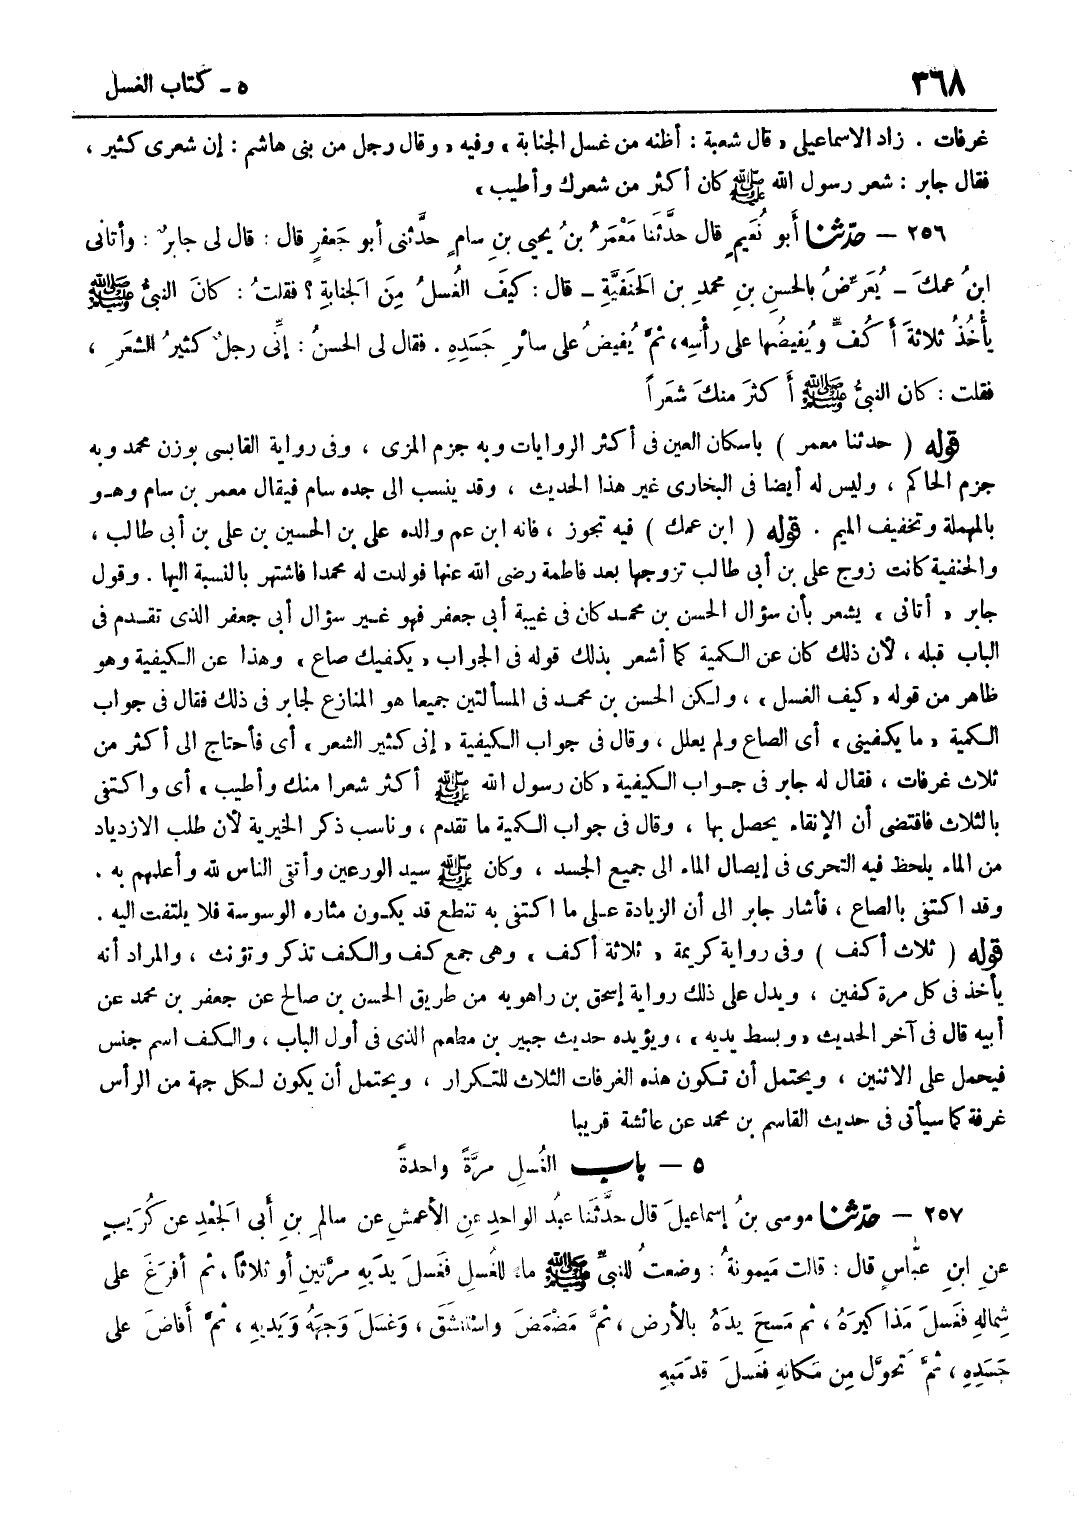 ٣٦٨
٥ - كتاب الغسل
غرفات . زاد الاسماعيلى « قال شعبة : أظنه من غسل الجنابة » وفيه « وقال رجل من بنى هاشم : إن شعرى كثير ،
فقال جابر : شعر رسول الله ﷺ كان أكثر من شعرك وأطيب »
٢٥٦ - حدّثنا أبو نُعَيمٍ قال حدَّثَنا مَعْمَرُ بنُ يحيى بنِ سامٍ حدَّثنى أبو جَعفرٍ قال : قال لى جابرٌ : وأتانى
ابنُ عمكَ - يُعَرِّضُ بالحسنِ بنِ محمدِ بنِ الحَنفيَّةِ - قال : كيفَ الغُسلُ مِنَ الجنابةِ ؟ فقلتُ : كانَ النبىُّ ﷺ
يأْخُذُ ثلاثةَ أَكُفٍّ ويُفيضُها على رأْسِه، ثمَّ يُفيضُ على سائرِ جَسَدِهِ . فقال لى الحسنُ : إنِّى رجلٌ كثيرُ الشعَرِ ،
فقلت : كان النبىُّ ﷺ أَكثرَ منكَ شعَراً
قوله ( حدثنا معمر ) باسكان العين فى أكثر الروايات وبه جزم المزى ، وفى رواية القابسى بوزن محمد وبه
جزم الحاكم ، وليس له أيضا فى البخارى غير هذا الحديث ، وقد ينسب الى جده سام فيقال معمر بن سام وهو
بالمهملة وتخفيف الميم . قوله ( ابن عمك ) فيه تجوز ، فانه ابن عم والده على بن الحسين بن على بن أبى طالب ،
والحنفية كانت زوج على بن أبى طالب تزوجها بعد فاطمة رضى الله عنها فولدت له محمدا فاشتهر بالنسبة اليها . وقول
جابر « أتانى » يشعر بأن سؤال الحسن بن محمد كان فى غيبة أبى جعفر فهو غير سؤال أبى جعفر الذى تقدم فى
الباب قبله ، لأن ذلك كان عن الكمية كما أشعر بذلك قوله فى الجواب « يكفيك صاع » وهذا عن الكيفية وهو
ظاهر من قوله « كيف الغسل » ، ولكن الحسن بن محمد فى المسألتين جميعا هو المنازع لجابر فى ذلك فقال فى جواب
الكمية « ما يكفينى » أى الصاع ولم يعلل ، وقال فى جواب الكيفية « إنى كثير الشعر » أى فأحتاج الى أكثر من
ثلاث غرفات ، فقال له جابر فى جواب الكيفية « كان رسول الله ﷺ أكثر شعرا منك وأطيب » أى واكتفى
بالثلاث فاقتضى أن الإنقاء يحصل بها ، وقال فى جواب الكمية ما تقدم ، وناسب ذكر الخيرية لأن طلب الازدياد
من الماء يلحظ فيه التحرى فى إيصال الماء الى جميع الجسد ، وكان ﷺ سيد الورعين وأتقى الناس لله وأعلمهم به .
وقد اكتفى بالصاع ، فأشار جابر الى أن الزيادة على ما اكتفى به تنطع قد يكون مثاره الوسوسة فلا يلتفت اليه .
قوله ( ثلاث أكف ) وفى رواية كريمة « ثلاثة أكف » وهى جمع كف والكف تذكر وتؤنث ، والمراد أنه
يأخذ فى كل مرة كفين ، ويدل على ذلك رواية إسحق بن راهويه من طريق الحسن بن صالح عن جعفر بن محمد عن
أبيه قال فى آخر الحديث « وبسط يديه » ، ويؤيده حديث جبير بن مطعم الذى فى أول الباب ، والكف اسم جنس
فيحمل على الاثنين ، ويحتمل أن تكون هذه الغرفات الثلاث للتكرار ، ويحتمل أن يكون لكل جهة من الرأس
غرفة كما سيأتى فى حديث القاسم بن محمد عن عائشة قريبا
٥ - باب الغُسلِ مرَّةً واحدةً
٢٥٧ - حدّثنا موسى بنُ إسماعيلَ قال حدَّثَنا عبدُ الواحدِ عنِ الأعمشِ عن سالمِ بنِ أبى الجَعْدِ عن كُرَيبٍ
عنِ ابنِ عبّاسٍ قال : قالت مَيمونةُ : وضعتُ للنبىِّ ﷺ ماءً للغُسلِ فغَسلَ يدَيهِ مرَّتينِ أو ثلاثاً ، ثم أفرَغَ على
شِمالهِ فغَسلَ مَذاكيرَهُ ، ثم مَسحَ يدَهُ بالأرض ، ثمَّ مَضْمَضَ واستنشقَ ، وغَسلَ وَجهَهُ ويَديهِ ، ثمَّ أفاضَ على
جَسَدِهِ ، ثمَّ تَحوَّل مِن مَكانهِ فغَسلَ قدَمَيهِ